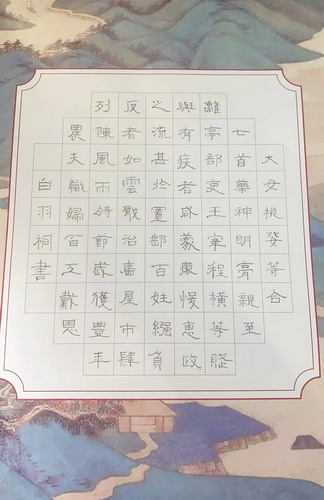 大女桃婓等合
七首藥神明膏親至
離亭部吏王宰程橫等賦
與有疾者咸蒙瘳悛惠政
之流甚於置郵百姓繈負
反者如雲戢治廧屋市肆
列陳風雨時節歲獲豐年
農夫織婦百工戴恩
白羽桐書